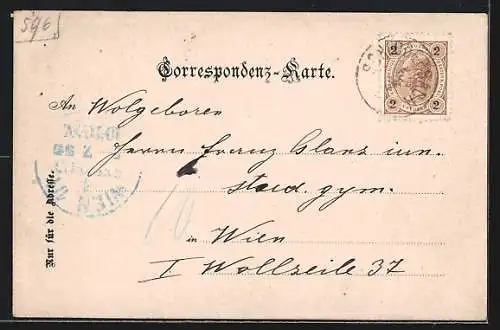 596
Correspondenz-Karte.
2 2
2 2
An Wolgeboren
Herrn Franz Glanz iun.
stud. gym.
in Wien
I Wollzeile 37
Nur für die Adresse.
WIEN
10